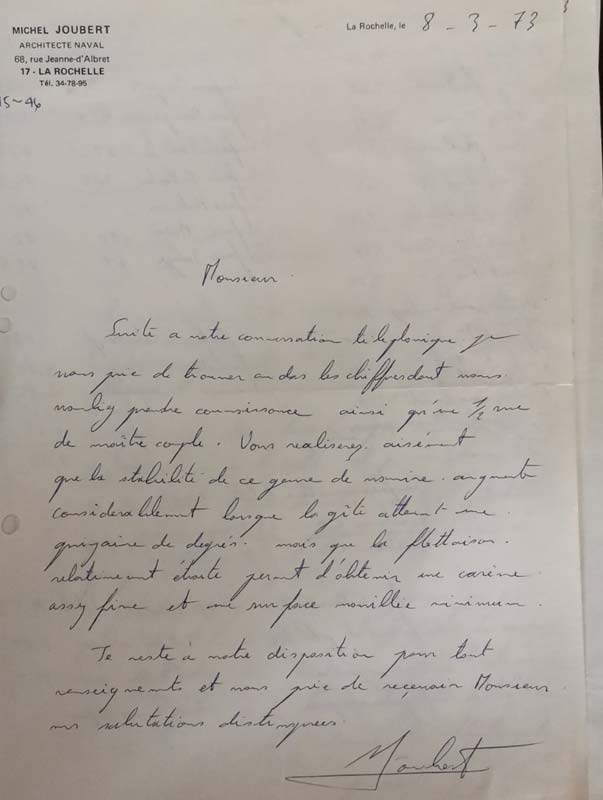 MICHEL JOUBERT
ARCHITECTE NAVAL
68, rue Jeanne-d'Albret
17 - LA ROCHELLE
Tél. 34-78-95
La Rochelle, le 8 - 3 - 73
Monsieur
Suite a notre conversation telephonique je
vous prie de trouver au dos les chiffres dont vous
vouliez prendre connaissance ainsi qu'une 1/2 vue
de maître couple. Vous realiserez aisément
que la stabilité de ce genre de navire augmente
considerablement lorsque la gîte atteint une
quinzaine de degrés. mais que la flottaison
relativement étroite permet d'obtenir une carène
assez fine et une surface mouillée minimum.
Je reste à votre disposition pour tout
renseignements et vous prie de recevoir Monsieur
mes salutations distinguees
Joubert